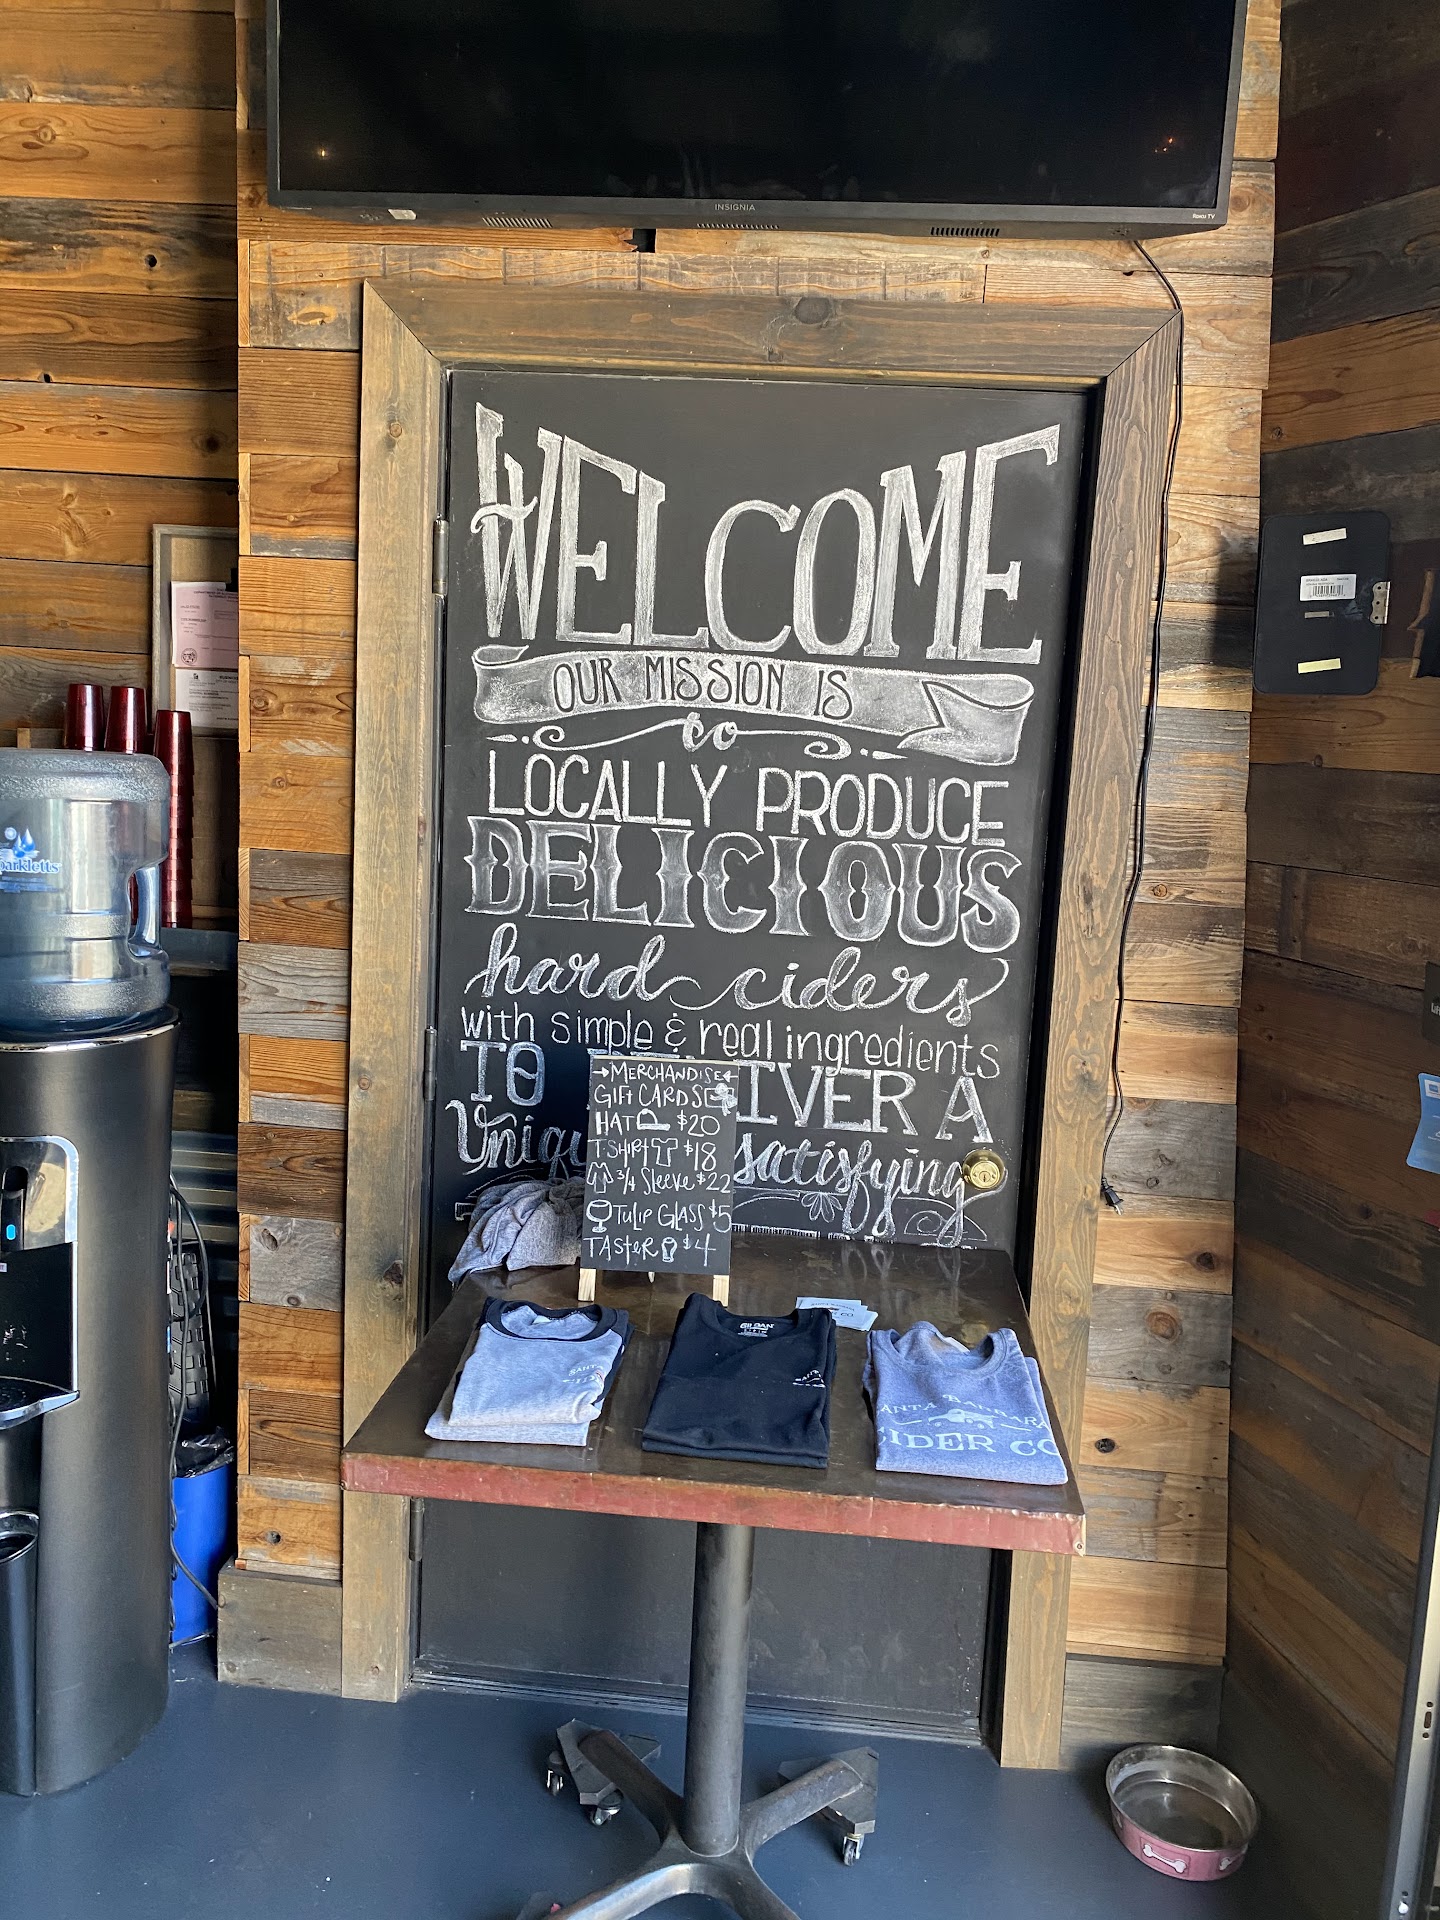 INSIGNIA
Roku TV
WELCOME
OUR MISSION IS
to
LOCALLY PRODUCE
DELICIOUS
hard ciders
with simple & real ingredients
TO DELIVER A
Unique satisfying
MERCHANDISE
GIFT CARDS
HAT $20
T-SHIRT $18
3/4 Sleeve $22
TULIP GLASS $5
TASTER $4
SANTA
CIDE
GILDAN
SANTA BARBARA
CIDER CO